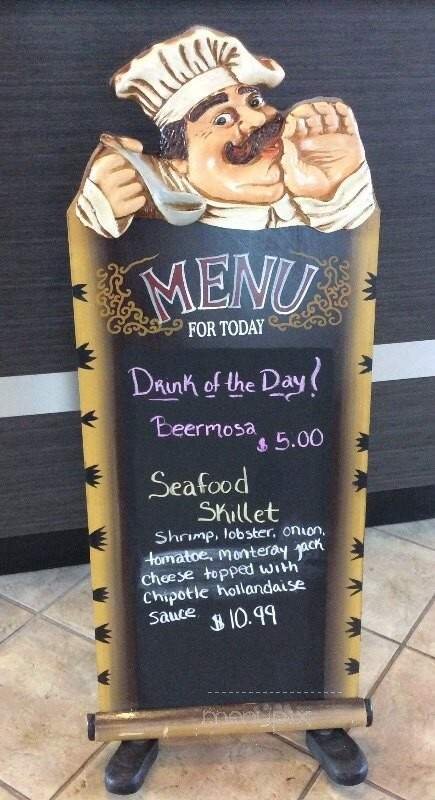 MENU
FOR TODAY
Drink of the Day!
Beermosa
$ 5.00
Seafood
Skillet
Shrimp, lobster, onion,
tomatoe, monteray jack
cheese topped with
Chipotle hollandaise
sauce. $ 10.99
menupix